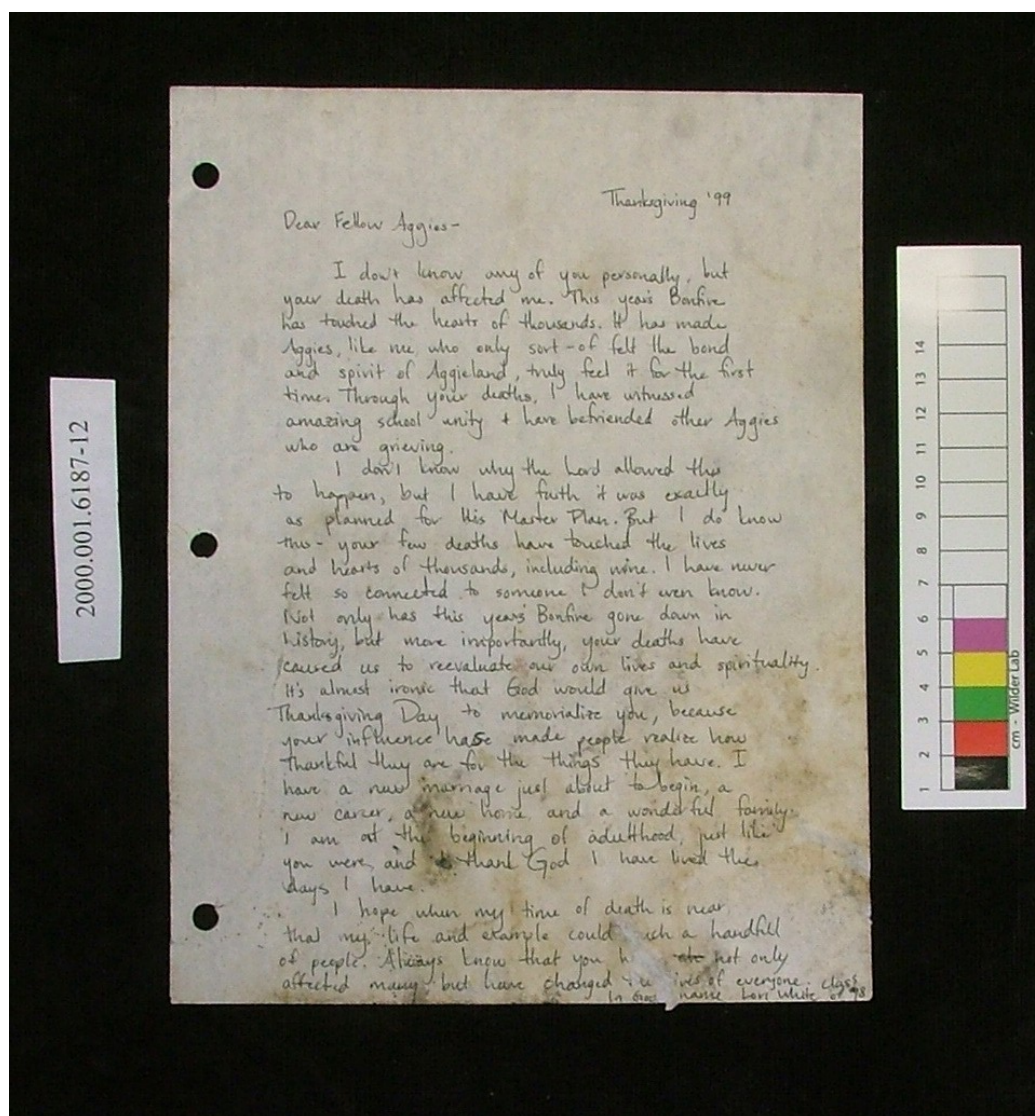 Thanksgiving '99
Dear Fellow Aggies-
I don't know any of you personally, but
your death has affected me. This year's Bonfire
has touched the hearts of thousands. It has made
Aggies, like me, who only sort-of felt the bond
and spirit of Aggieland, truly feel it for the first
time. Through your deaths, I have witnessed
amazing school unity + have befriended other Aggies
who are grieving.
I don't know why the Lord allowed this
to happen, but I have faith it was exactly
as planned for His Master Plan. But I do know
this - your few deaths have touched the lives
and hearts of thousands, including mine. I have never
felt so connected to someone I don't even know.
Not only has this years' Bonfire gone down in
history, but more importantly, your deaths have
caused us to reevaluate our own lives and spirituality.
It's almost ironic that God would give us
Thanksgiving Day to memorialize you, because
your influence has made people realize how
thankful they are for the things they have. I
have a new marriage just about to begin, a
new career, a new home, and a wonderful family.
I am at the beginning of adulthood, just like
you were, and thank God I have lived the
days I have.
I hope when my time of death is near
that my life and example could such a handfull
of people. Always know that you not only
affected many but have changed of everyone.
In God's name, Lori White class of '98
2000.001.6187-12
14
13
12
11
10
9
8
7
6
5
4
3
2
1
cm - Wilder Lab